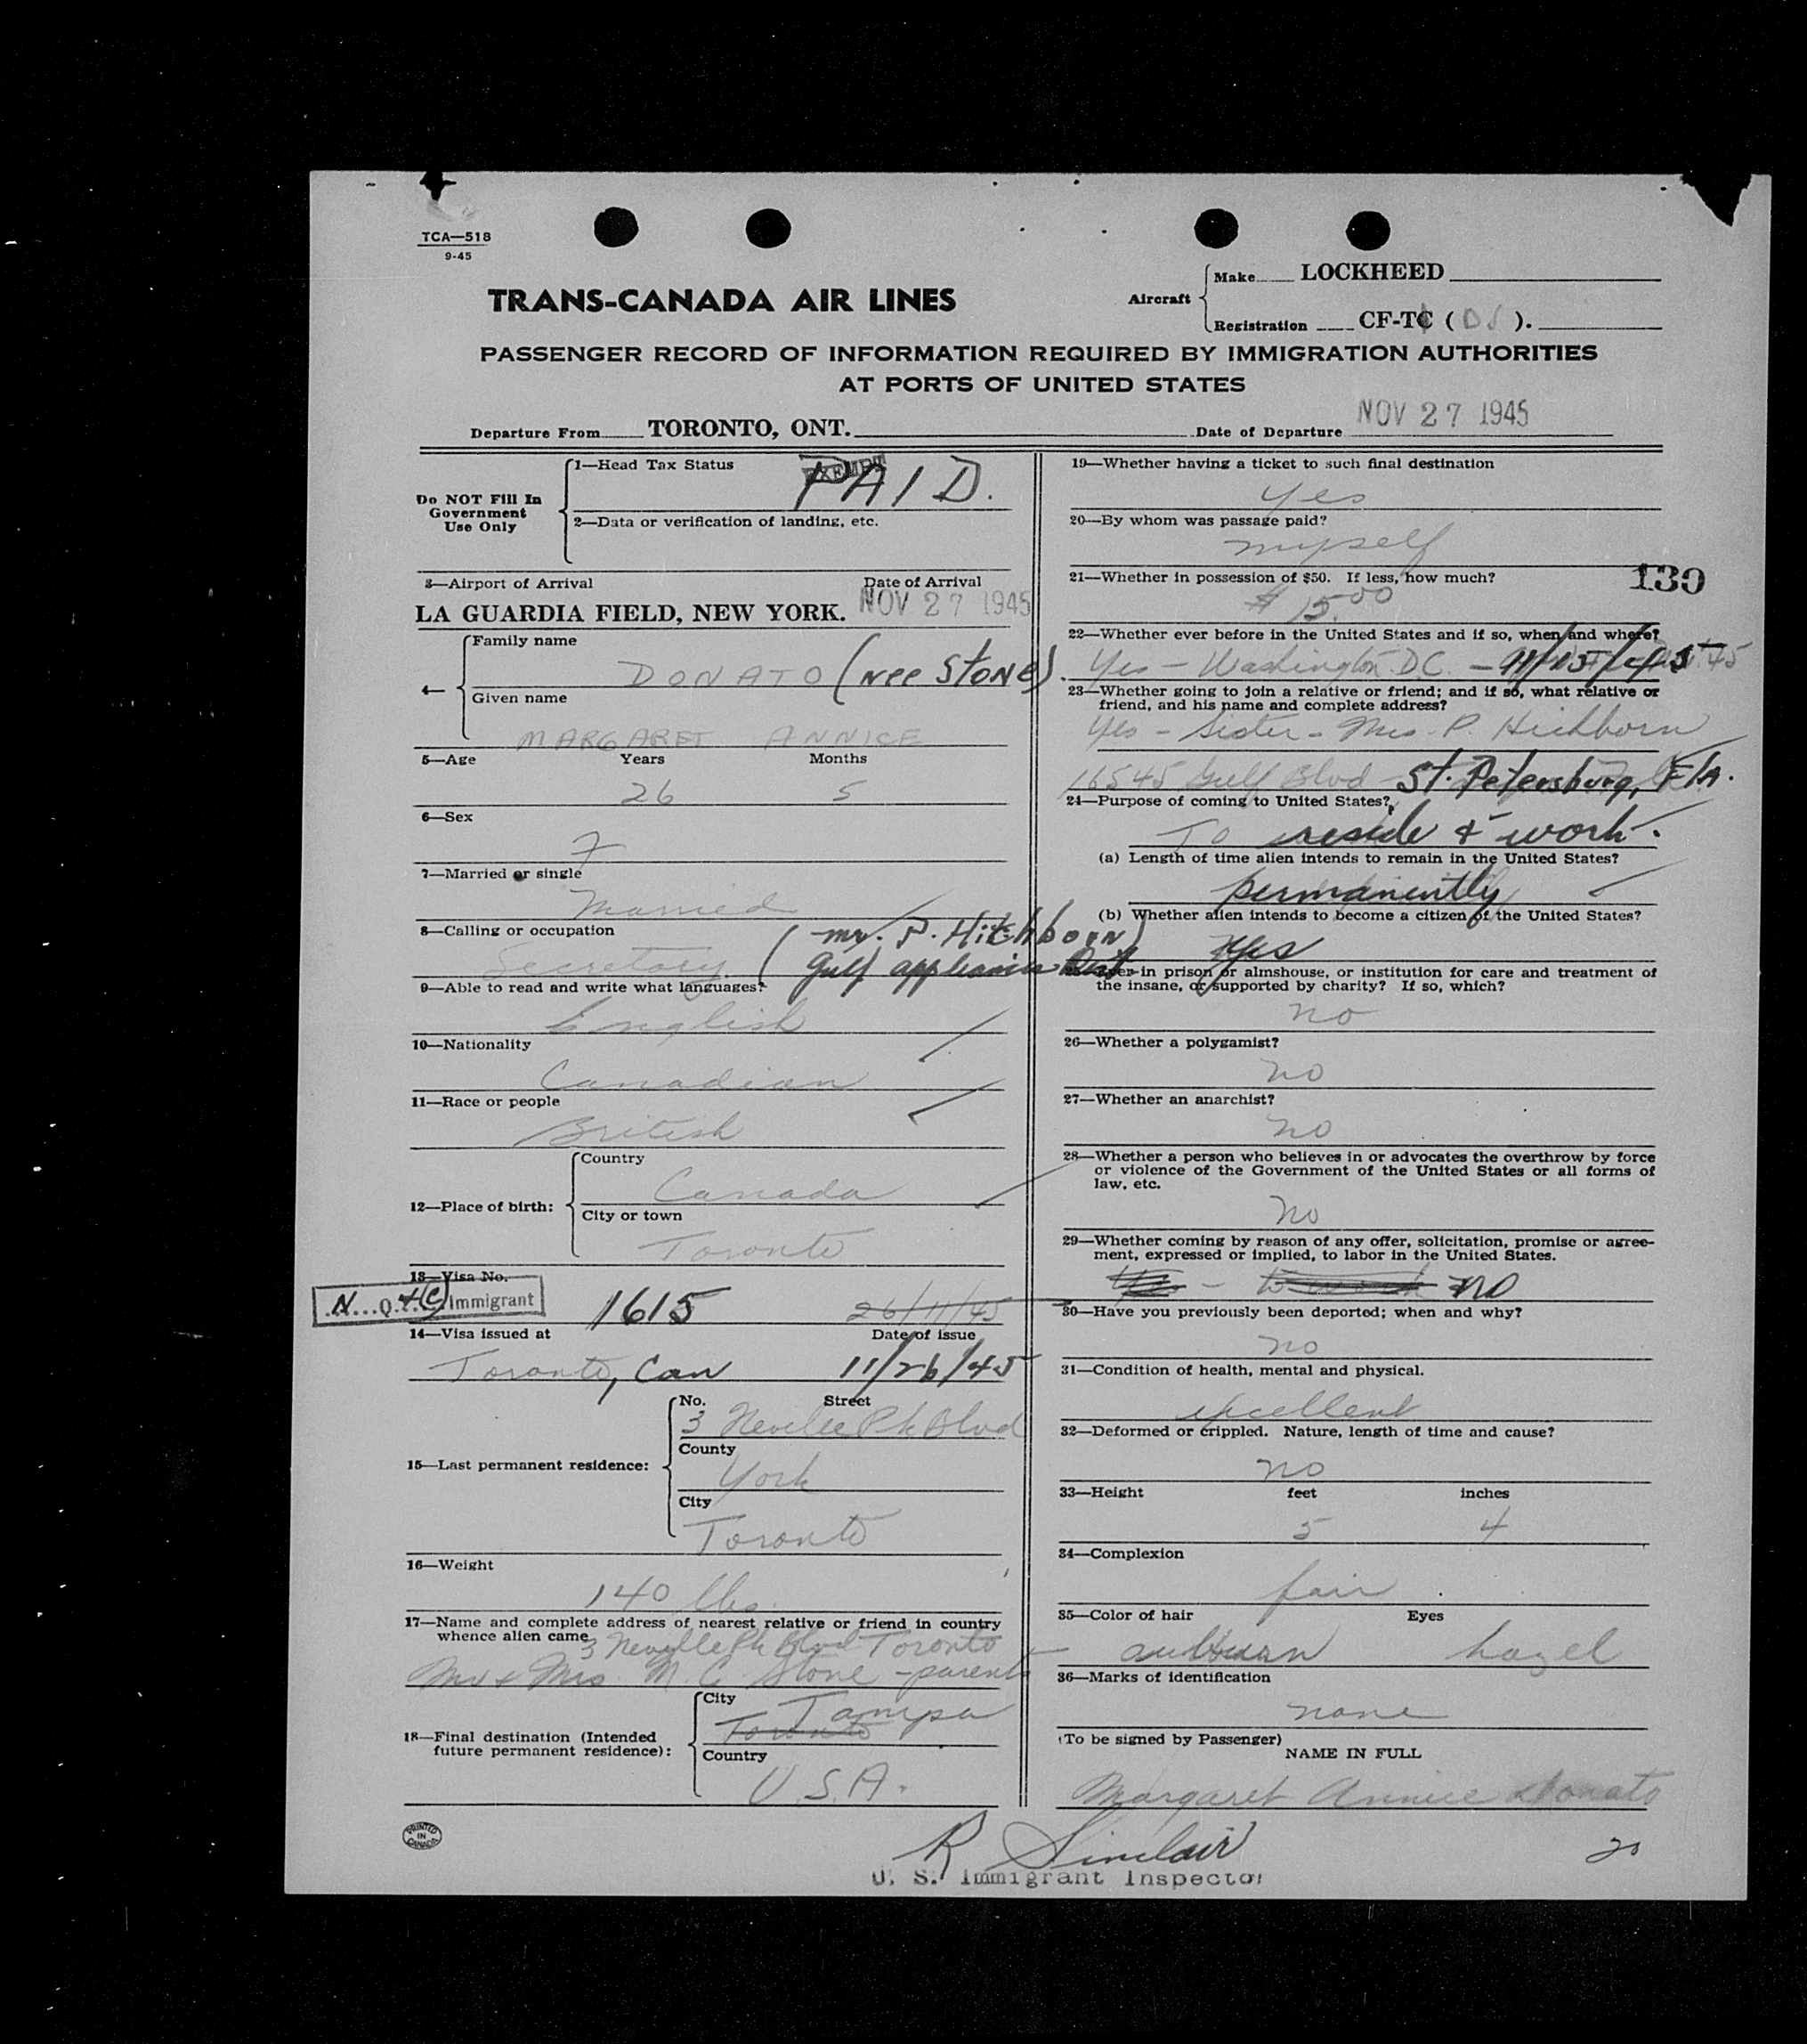 TCA—518
9-45
TRANS-CANADA AIR LINES
Aircraft
Make LOCKHEED
Registration CF-TC ( DJ ).
PASSENGER RECORD OF INFORMATION REQUIRED BY IMMIGRATION AUTHORITIES
AT PORTS OF UNITED STATES
Departure From TORONTO, ONT. Date of Departure NOV 27 1945
Do NOT Fill In
Government
Use Only
1—Head Tax Status
EXEMPT
PAID.
2—Data or verification of landing, etc.
3—Airport of Arrival Date of Arrival
LA GUARDIA FIELD, NEW YORK. NOV 27 1945
Family name
DONATO (nee STONE).
Given name
MARGARET ANNICE
5—Age Years Months
26 5
6—Sex
F
7—Married or single
Married
8—Calling or occupation
(mr. P. Hitchborn)
Secretary. (Gulf appliance
9—Able to read and write what languages?
English
10—Nationality
Canadian
11—Race or people
British
12—Place of birth:
Country
Canada
City or town
Toronto
13—Visa No.
N...Q. Immigrant 1615 26/11/45
14—Visa issued at Date of issue
Toronto, Can 11/26/45
15—Last permanent residence:
No. Street
3 Neville Pk Blvd
County
York
City
Toronto
16—Weight
140 lbs.
17—Name and complete address of nearest relative or friend in country
whence alien came
3 Neville Pk Blvd Toronto
Mr & Mrs. M. C. Stone - parents
18—Final destination (Intended
future permanent residence):
City
Tampa
Toronto
Country
U.S.A.
PRINTED
IN
CANADA
19—Whether having a ticket to such final destination
Yes
20—By whom was passage paid?
myself
21—Whether in possession of $50. If less, how much?
$ 15.00
130
22—Whether ever before in the United States and if so, when and where?
Yes - Washington D.C. - 11/15/45
23—Whether going to join a relative or friend; and if so, what relative or
friend, and his name and complete address?
Yes - Sister - Mrs. P. Hichborn
16545 Gulf Blvd St. Petersburg, Fla.
24—Purpose of coming to United States?
To reside & work.
(a) Length of time alien intends to remain in the United States?
permanently
(b) Whether alien intends to become a citizen of the United States?
Yes
ever in prison or almshouse, or institution for care and treatment of
the insane, or supported by charity? If so, which?
no
26—Whether a polygamist?
no
27—Whether an anarchist?
no
28—Whether a person who believes in or advocates the overthrow by force
or violence of the Government of the United States or all forms of
law, etc.
no
29—Whether coming by reason of any offer, solicitation, promise or agree-
ment, expressed or implied, to labor in the United States.
Yes - to work no
30—Have you previously been deported; when and why?
no
31—Condition of health, mental and physical.
excellent
32—Deformed or crippled. Nature, length of time and cause?
no
33—Height feet inches
5 4
34—Complexion
fair
35—Color of hair Eyes
auburn hazel
36—Marks of identification
none
(To be signed by Passenger)
NAME IN FULL
Margaret Annice Donato
R Sinclair
U. S. Immigrant Inspector
20